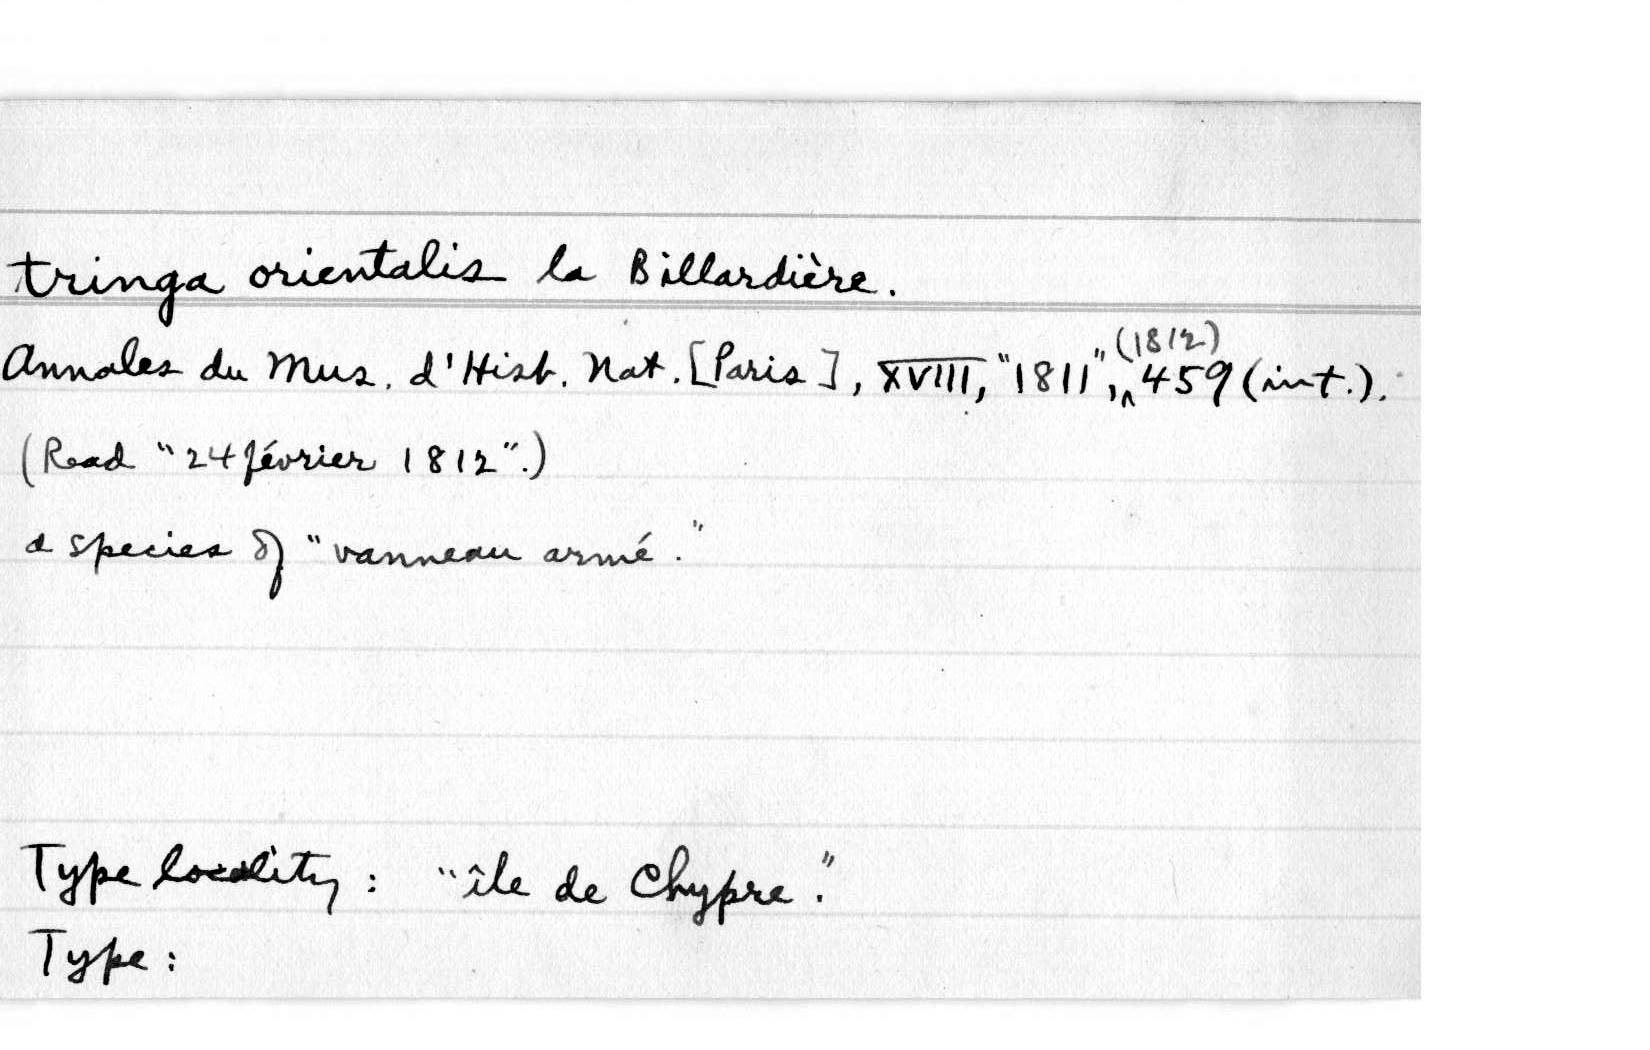 tringa orientalis la Billardière.
Annales du Mus. d'Hist. Nat. [Paris], XVIII, "1811", (1812) 459 (int.).
(Read "24 février 1812".)
a species of "vanneau armé."
Type locality: "île de Chypre."
Type: